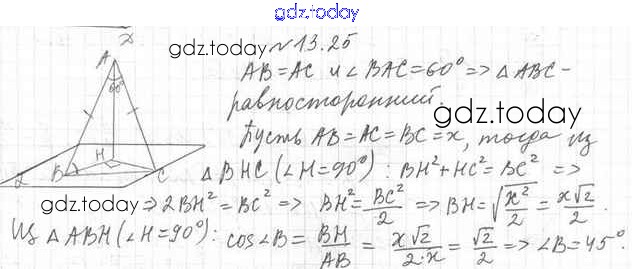 gdz.today
α
gdz.today
№13.25
A
60°
B
H
C
α
AB=AC и ∠BAC=60° => △ABC-
равносторонний.
gdz.today
Пусть AB=AC=BC=x, тогда из
△BHC (∠H=90°): BH²+HC²=BC² =>
gdz.today
=> 2BH²=BC² => BH²=BC²/2 => BH=√(x²/2)=x√2/2.
Из △ABH (∠H=90°): cos∠B=BH/AB=x√2/2·x=√2/2 => ∠B=45°.